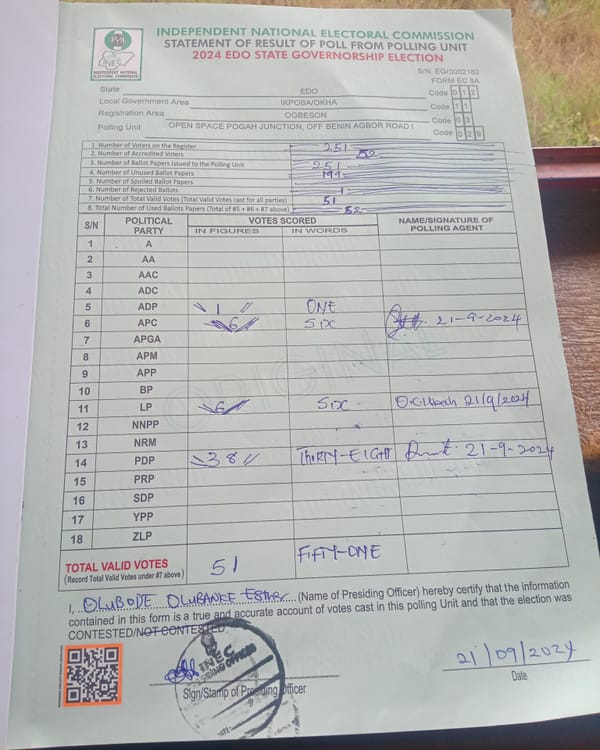 INDEPENDENT NATIONAL ELECTORAL COMMISSION
STATEMENT OF RESULT OF POLL FROM POLLING UNIT
2024 EDO STATE GOVERNORSHIP ELECTION
INEC
INDEPENDENT NATIONAL
ELECTORAL COMMISSION
S/N. EG/0002182
FORM EC 8A
State EDO Code 012
Local Government Area IKPOBA/OKHA Code 11
Registration Area OGBESON Code 03
Polling Unit OPEN SPACE POGAH JUNCTION, OFF BENIN AGBOR ROAD I Code 029
1. Number of Voters on the Register 251
2. Number of Accredited Voters 52
3. Number of Ballot Papers Issued to the Polling Unit 251
4. Number of Unused Ballot Papers 199
5. Number of Spoiled Ballot Papers
6. Number of Rejected Ballots 1
7. Number of Total Valid Votes (Total Valid Votes cast for all parties) 51
8. Total Number of Used Ballots Papers (Total of #5 + #6 + #7 above) 52
S/N POLITICAL PARTY VOTES SCORED NAME/SIGNATURE OF POLLING AGENT
IN FIGURES IN WORDS
1 A
2 AA
3 AAC
4 ADC
5 ADP 1 ONE
6 APC 6 SIX 21-9-2024
7 APGA
8 APM
9 APP
10 BP
11 LP 6 SIX 21/9/2024
12 NNPP
13 NRM
14 PDP 38 THIRTY-EIGHT 21-9-2024
15 PRP
16 SDP
17 YPP
18 ZLP
ORIGINAL
TOTAL VALID VOTES 51 FIFTY-ONE
(Record Total Valid Votes under #7 above)
I, OLUBODE OLUBANKE ESTHER (Name of Presiding Officer) hereby certify that the information
contained in this form is a true and accurate account of votes cast in this polling Unit and that the election was
CONTESTED/NOT CONTESTED
INEC
PRESIDING OFFICER
DATE
Sign/Stamp of Presiding Officer
21/09/2024
Date